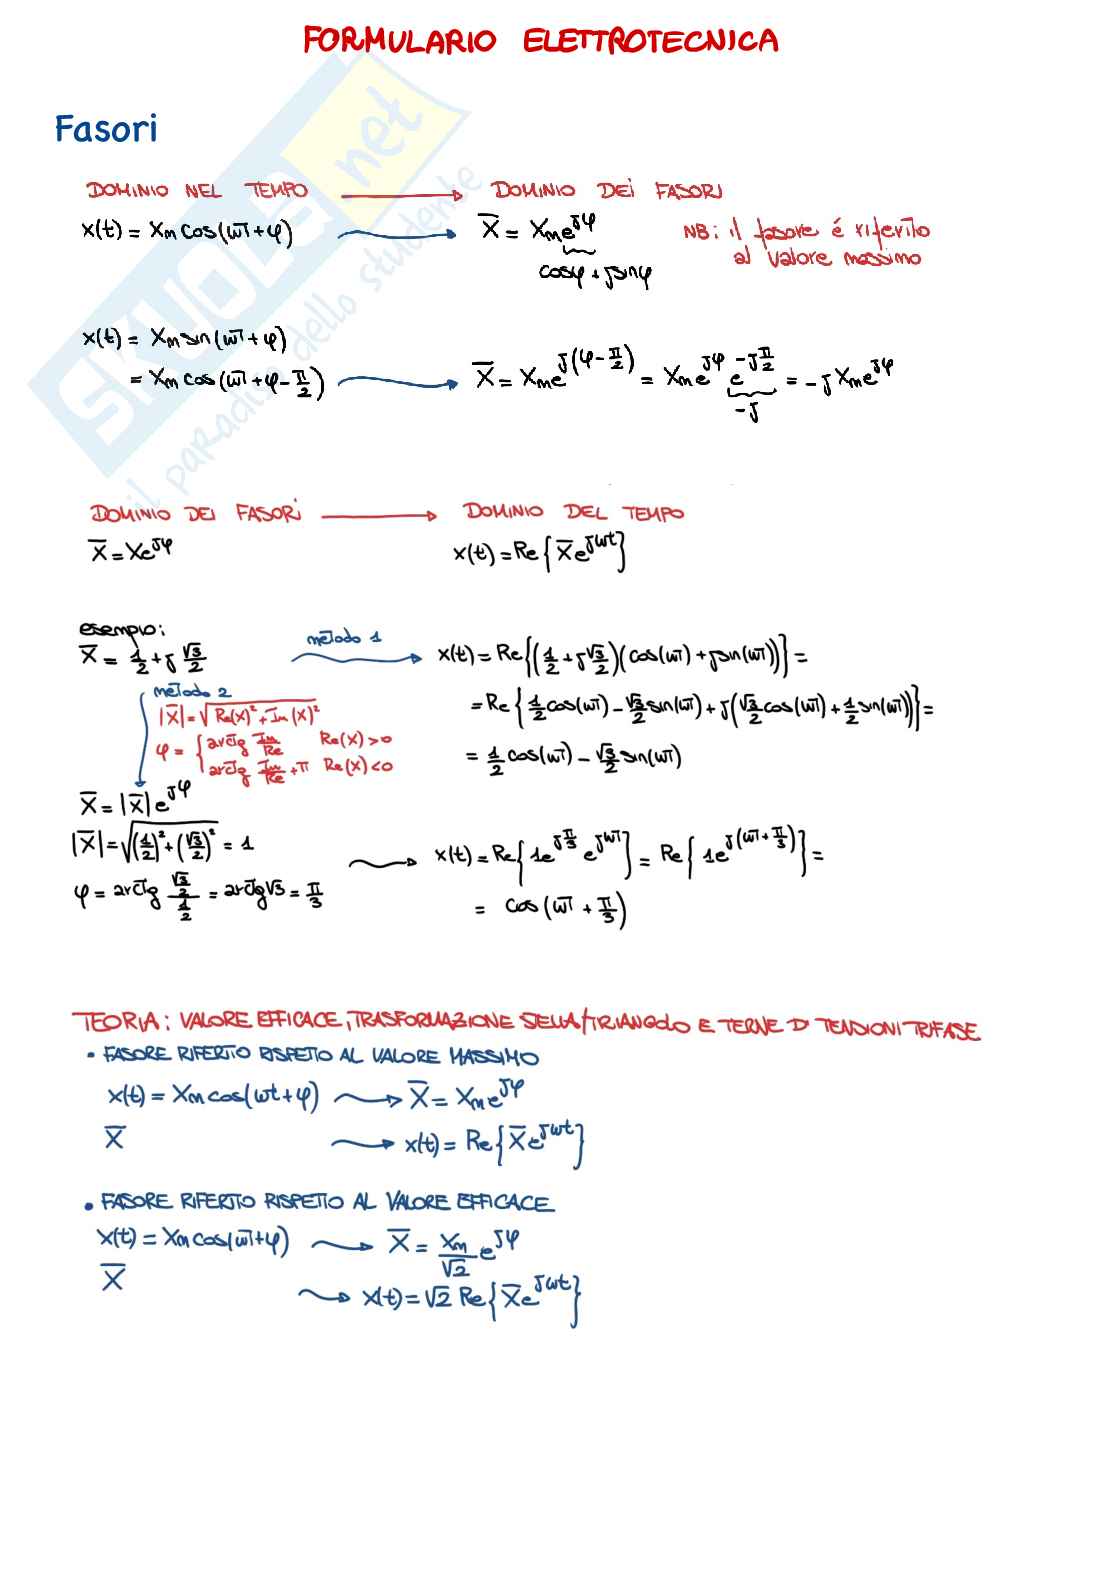 FORMULARIO ELETTROTECNICA
Fasori
DOMINIO NEL TEMPO → DOMINIO DEI FASORI
x(t) = Xm cos(ωt+φ) → X̅ = Xm e^{jφ} NB: il fasore é riferito
cosφ + jsinφ al valore massimo
x(t) = Xm sin(ωt+φ)
= Xm cos(ωt+φ-π/2) → X̅ = Xm e^{j(φ-π/2)} = Xm e^{jφ} e^{-jπ/2} = -j Xm e^{jφ}
-j
DOMINIO DEI FASORI → DOMINIO DEL TEMPO
X̅ = X e^{jφ} x(t) = Re{X̅ e^{jωt}}
esempio:
X̅ = 1/2 + j √3/2 metodo 1 → x(t) = Re{(1/2 + j√3/2)(cos(ωt) + jsin(ωt))} =
metodo 2
|X̅| = √(Re(X)² + Im(X)²) = Re{1/2 cos(ωt) - √3/2 sin(ωt) + j(√3/2 cos(ωt) + 1/2 sin(ωt))} =
φ = { arctg Im/Re Re(X)>0
arctg Im/Re + π Re(X)<0 = 1/2 cos(ωt) - √3/2 sin(ωt)
X̅ = |X̅| e^{jφ}
|X̅| = √((1/2)² + (√3/2)²) = 1 → x(t) = Re{1e^{jπ/3} e^{jωt}} = Re{1e^{j(ωt+π/3)}} =
φ = arctg (√3/2)/(1/2) = arctg√3 = π/3 = cos(ωt + π/3)
TEORIA: VALORE EFFICACE, TRASFORMAZIONE STELLA/TRIANGOLO E TERNE DI TENSIONI TRIFASE
• FASORE RIFERITO RISPETTO AL VALORE MASSIMO
x(t) = Xm cos(ωt+φ) → X̅ = Xm e^{jφ}
X̅ → x(t) = Re{X̅ e^{jωt}}
• FASORE RIFERITO RISPETTO AL VALORE EFFICACE
x(t) = Xm cos(ωt+φ) → X̅ = Xm/√2 e^{jφ}
X̅ → x(t) = √2 Re{X̅ e^{jωt}}
SKUOLA.net
il paradiso dello studente